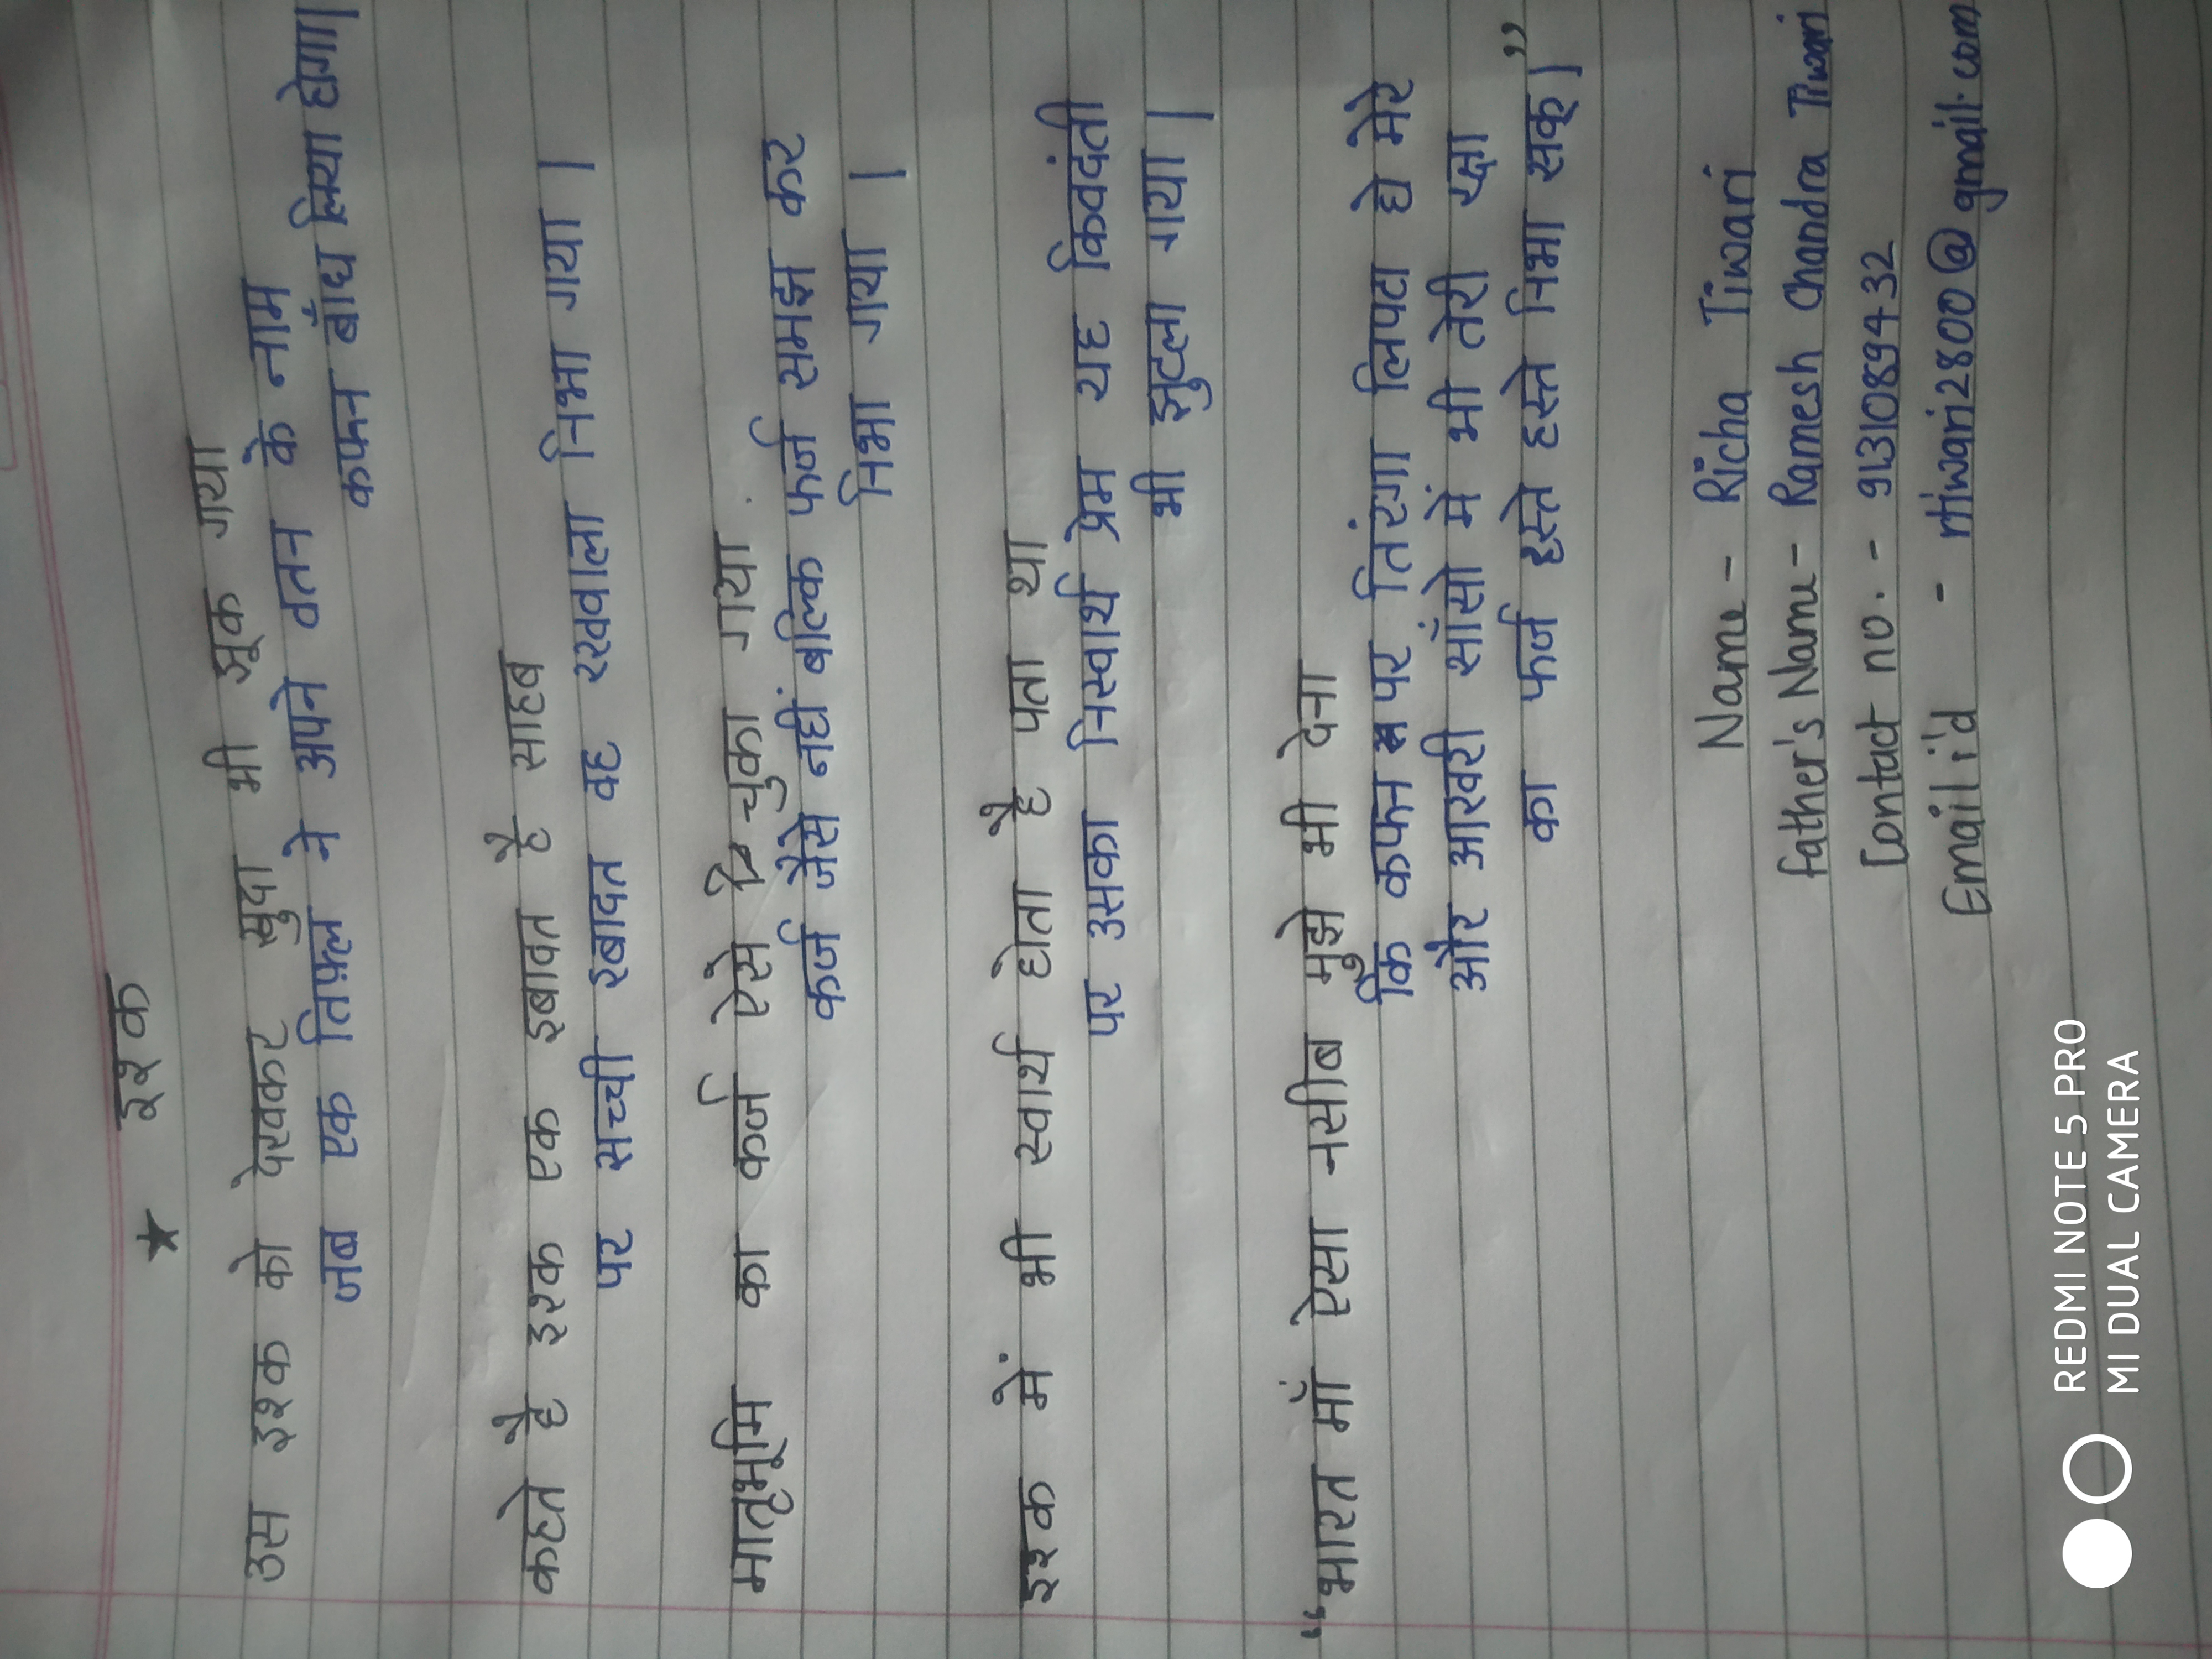 ★ इश्क
उस इश्क को देखकर खुदा भी झुक गया
जब एक तिफ़्ल ने अपने वतन के नाम
कफन बाँध लिया होगा|
कहते है इश्क एक इबादत है साहब
पर सच्ची इबादत वह रखवाला निभा गया |
मातृभूमि का कर्ज ऐसे चुका गया
कर्ज जैसे नहीं बल्कि फर्ज समझ कर
निभा गया |
इश्क में भी स्वार्थ होता है पता था
पर उसका निस्वार्थ प्रेम यह किवदंती
भी झुठला गया |
“भारत माँ ऐसा नसीब मुझे भी देना
कि कफन पर तिरंगा लिपटा हो मेरे
और आखरी साँसो में भी तेरी रक्षा
का फर्ज हस्ते हस्ते निभा सकू|”
Name - Richa Tiwari
Father's Name - Ramesh Chandra Tiwari
Contact no. - 9131089432
Email id - rtiwari2800@gmail.com
REDMI NOTE 5 PRO
MI DUAL CAMERA